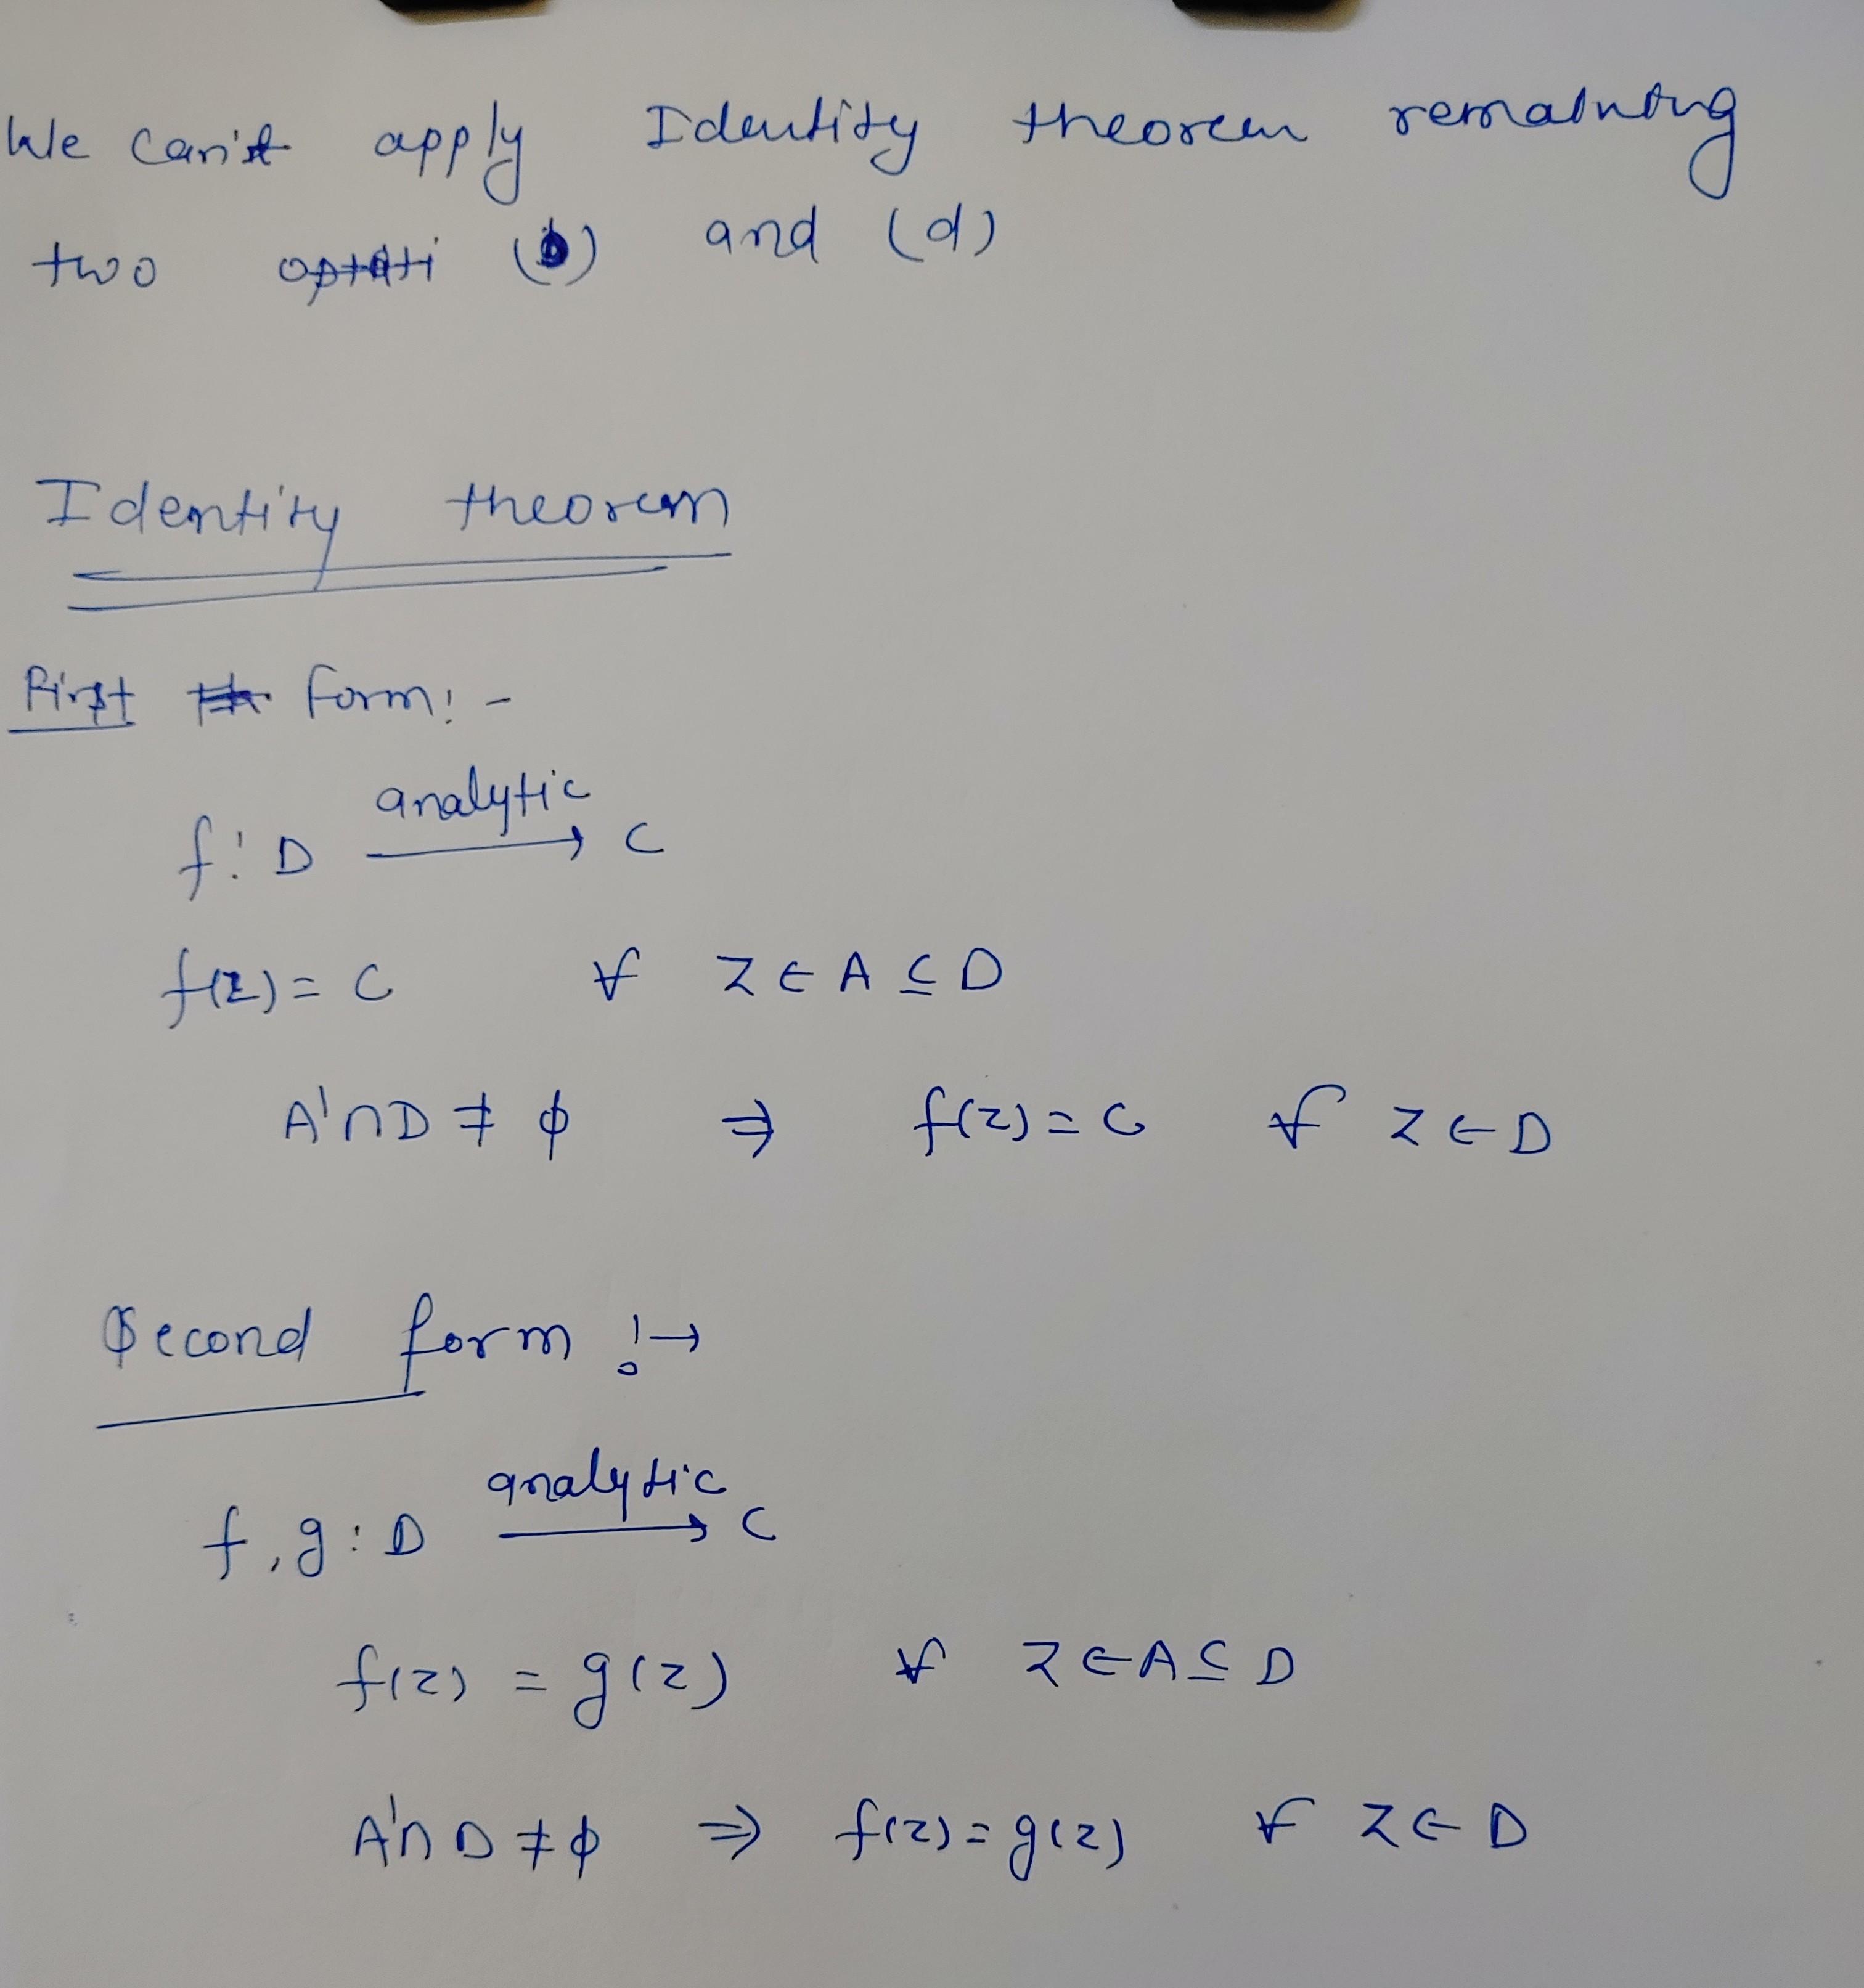 We can't apply Identity theorem remaining
two (b) and (d)
Identity theorem
First form:-
f: D analytic→ C
f(z) = C ∀ z ∈ A ⊆ D
A'∩D ≠ ϕ ⇒ f(z) = C ∀ z ∈ D
Second form :→
f, g: D analytic→ C
f(z) = g(z) ∀ z ∈ A ⊆ D
A'∩D ≠ ϕ ⇒ f(z) = g(z) ∀ z ∈ D